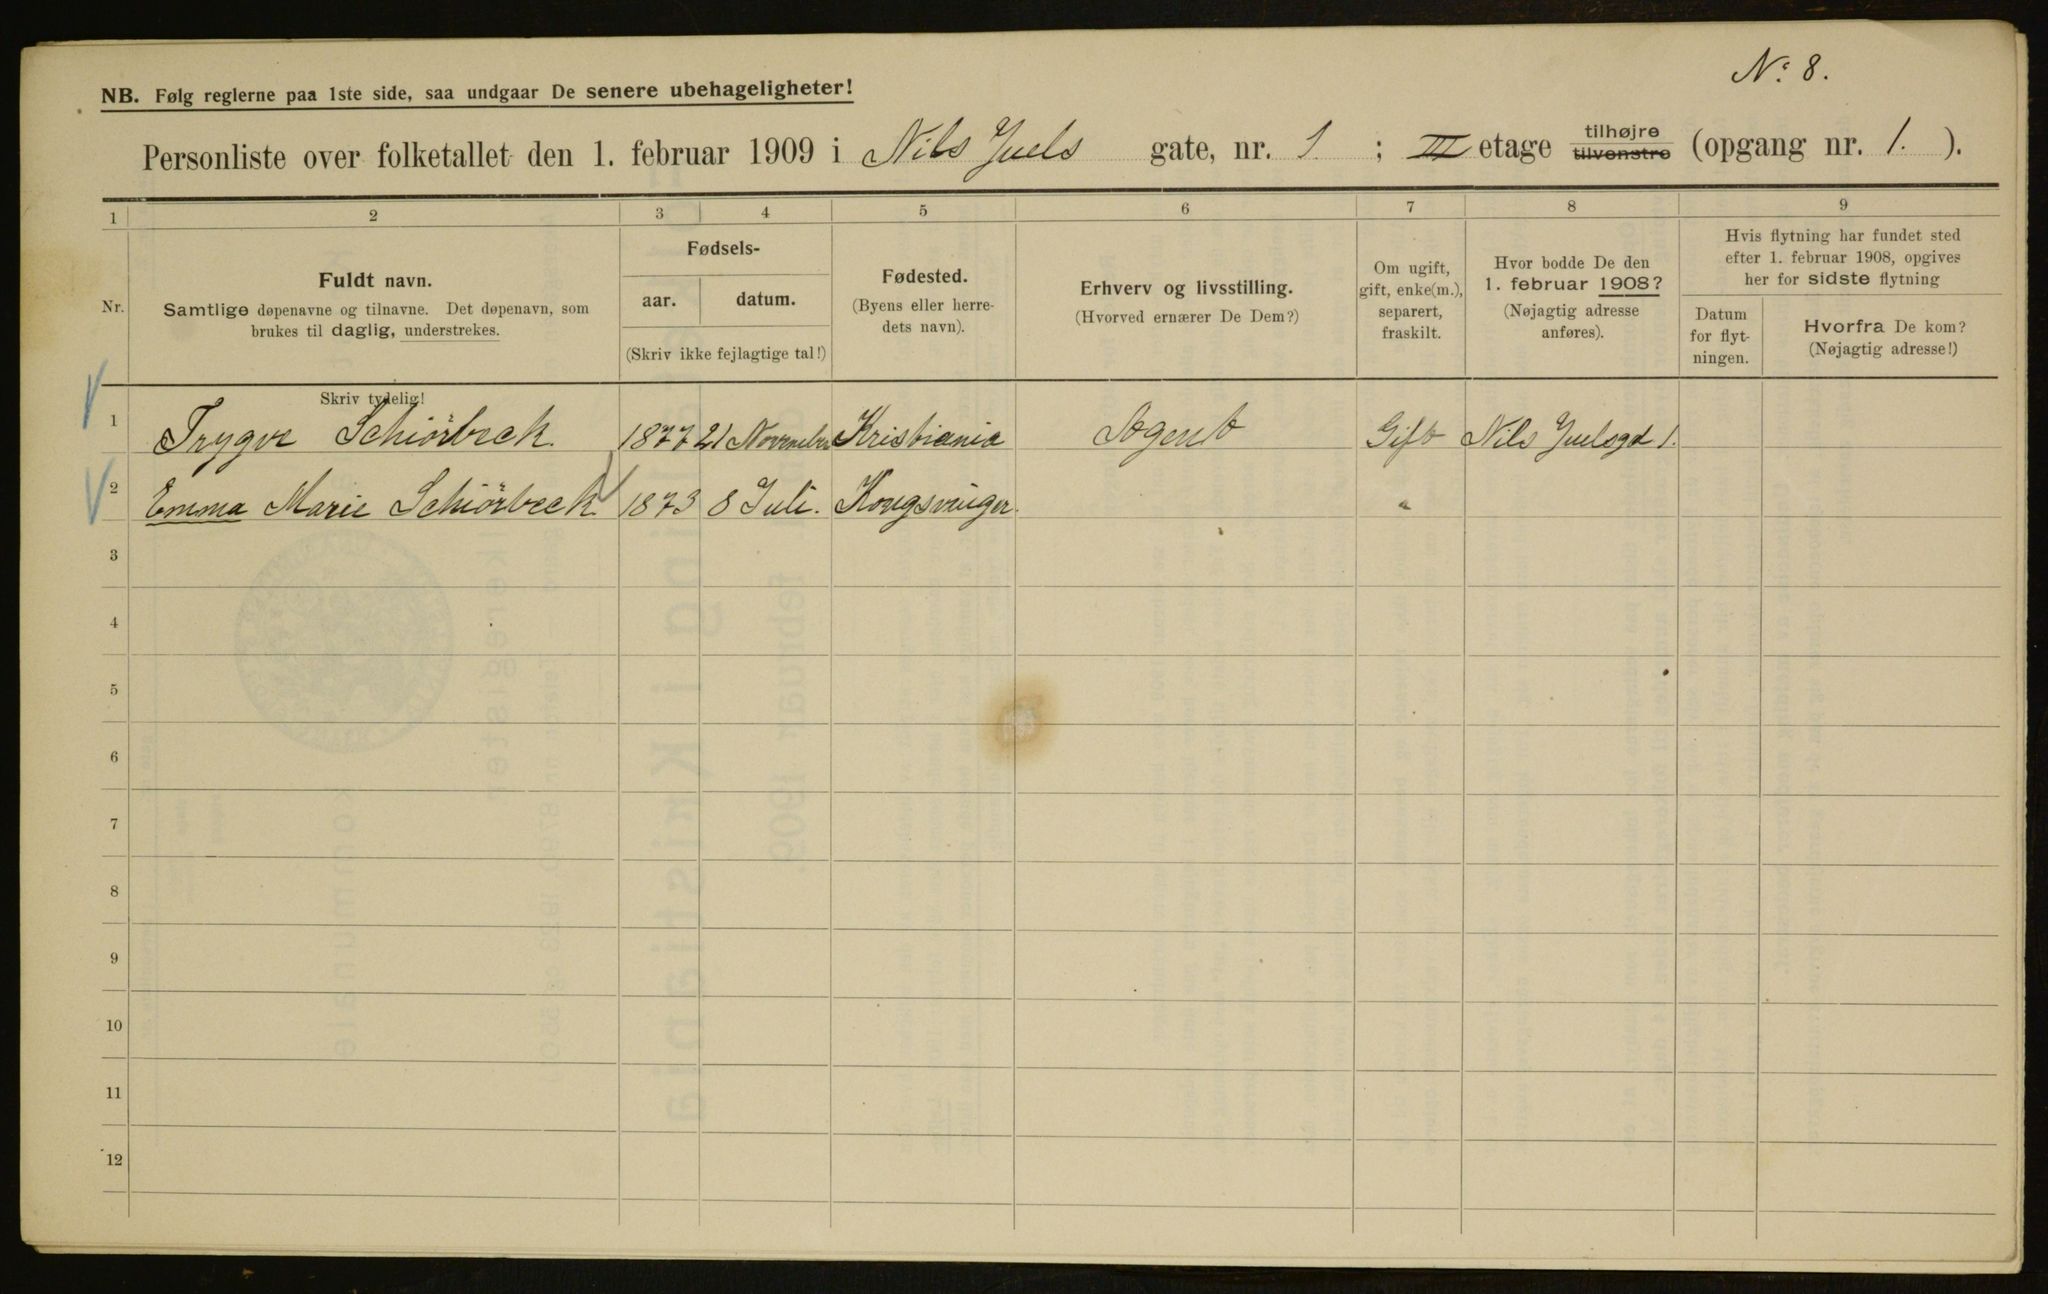 No. 8.
NB. Følg reglerne paa 1ste side, saa undgaar De senere ubehageligheter!
Personliste over folketallet den 1. februar 1909 i Nils Juels gate, nr. 1 ; III etage tilhøjre tilvenstre (opgang nr. 1. ).
1 2 3 4 5 6 7 8 9
Nr.
Fuldt navn.
Samtlige døpenavne og tilnavne. Det døpenavn, som
brukes til daglig, understrekes.
Fødsels-
aar. datum.
(Skriv ikke fejlagtige tal!)
Fødested.
(Byens eller herre-
dets navn).
Erhverv og livsstilling.
(Hvorved ernærer De Dem?)
Om ugift,
gift, enke(m.),
separert,
fraskilt.
Hvor bodde De den
1. februar 1908?
(Nøjagtig adresse
anføres).
Hvis flytning har fundet sted
efter 1. februar 1908, opgives
her for sidste flytning
Datum
for flyt-
ningen.
Hvorfra De kom?
(Nøjagtig adresse!)
Skriv tydelig!
1 Trygve Schiörbeck. 1877 21 November Kristiania Agent Gift Nils Juelsgd 1.
2 Emma Marie Schiörbeck 1873 8 Juli. Kongsvinger. "
3
4
5
6
7
8
9
10
11
12